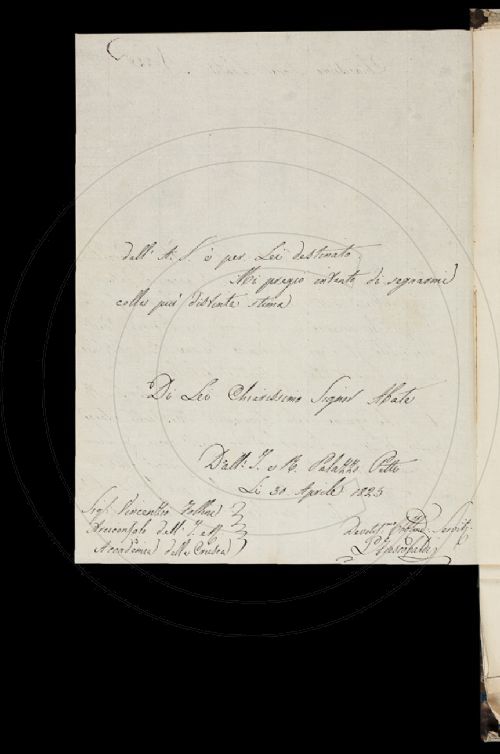 dall' A. S. è per Lei destinato
Mi pregio intanto di segnarmi
colla più distinta stima
Di Lei Chiarissimo Signor Abate
Dall' I. e R. Palazzo Pitti
Li 30 Aprile 1825
Sigr. Vincenzio Follini
Arciconsolo dell' I. e R.
Accademia della Crusca
Servit: